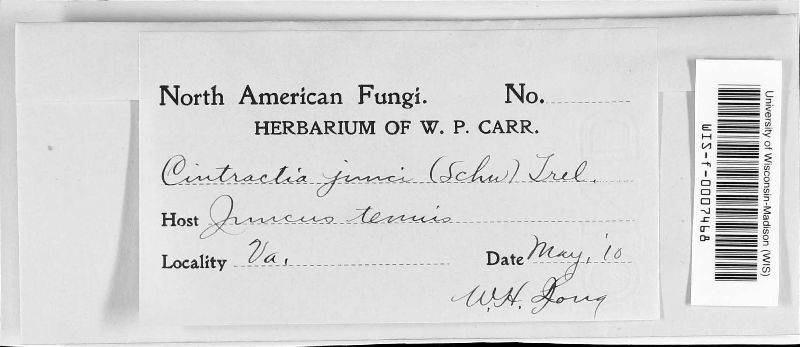 North American Fungi. No.
HERBARIUM OF W. P. CARR.
Cintractia junci (Schw) Trel.
Host Juncus tenuis
Locality Va. Date May, '10
W. H. Long
University of Wisconsin-Madison (WIS)
WIS-f-0007468